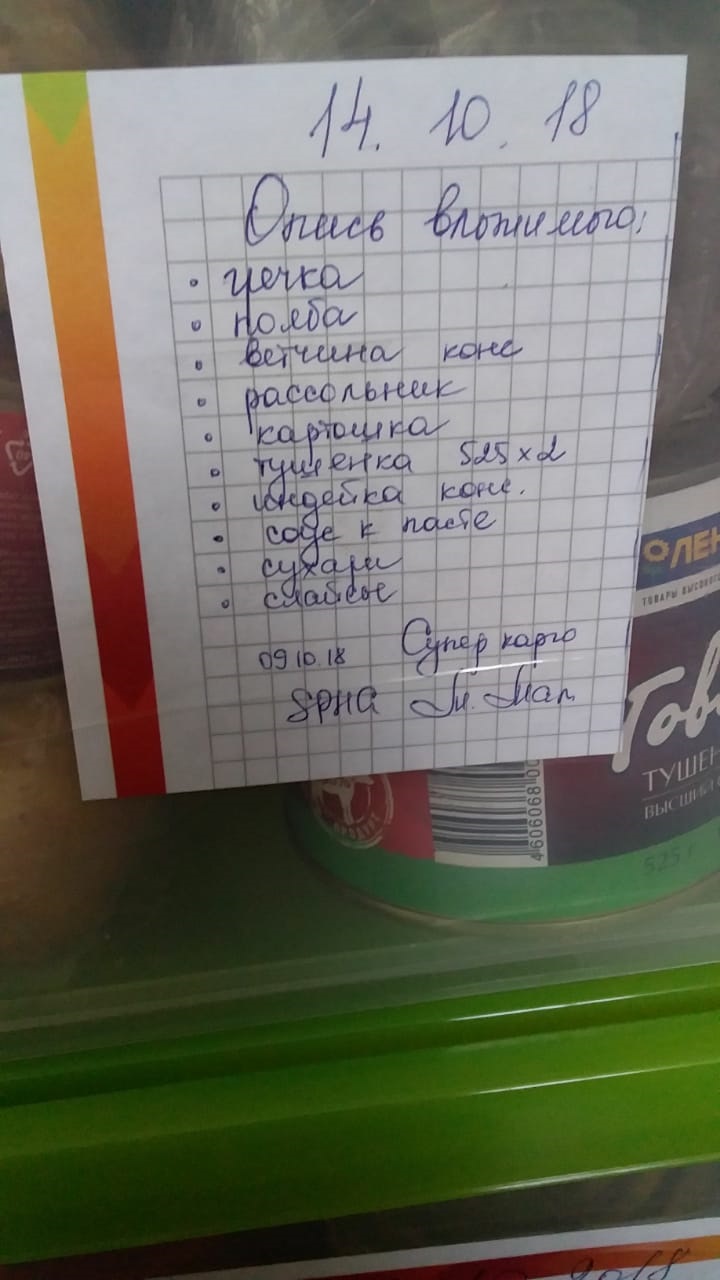 14. 10. 18
Опись вложимого:
• гречка
• полба
• ветчина конс
• рассольник
• картошка
• тушенка 525 x 2
• индейка конс.
• соус к пасте
• сухари
• слайсы
09.10.18 Супер карго
ЛЕН
ТОВАРЫ ВЫСОКОГО
Гов
ТУШЕН
ВЫСШИЙ
525 г
4606068 00